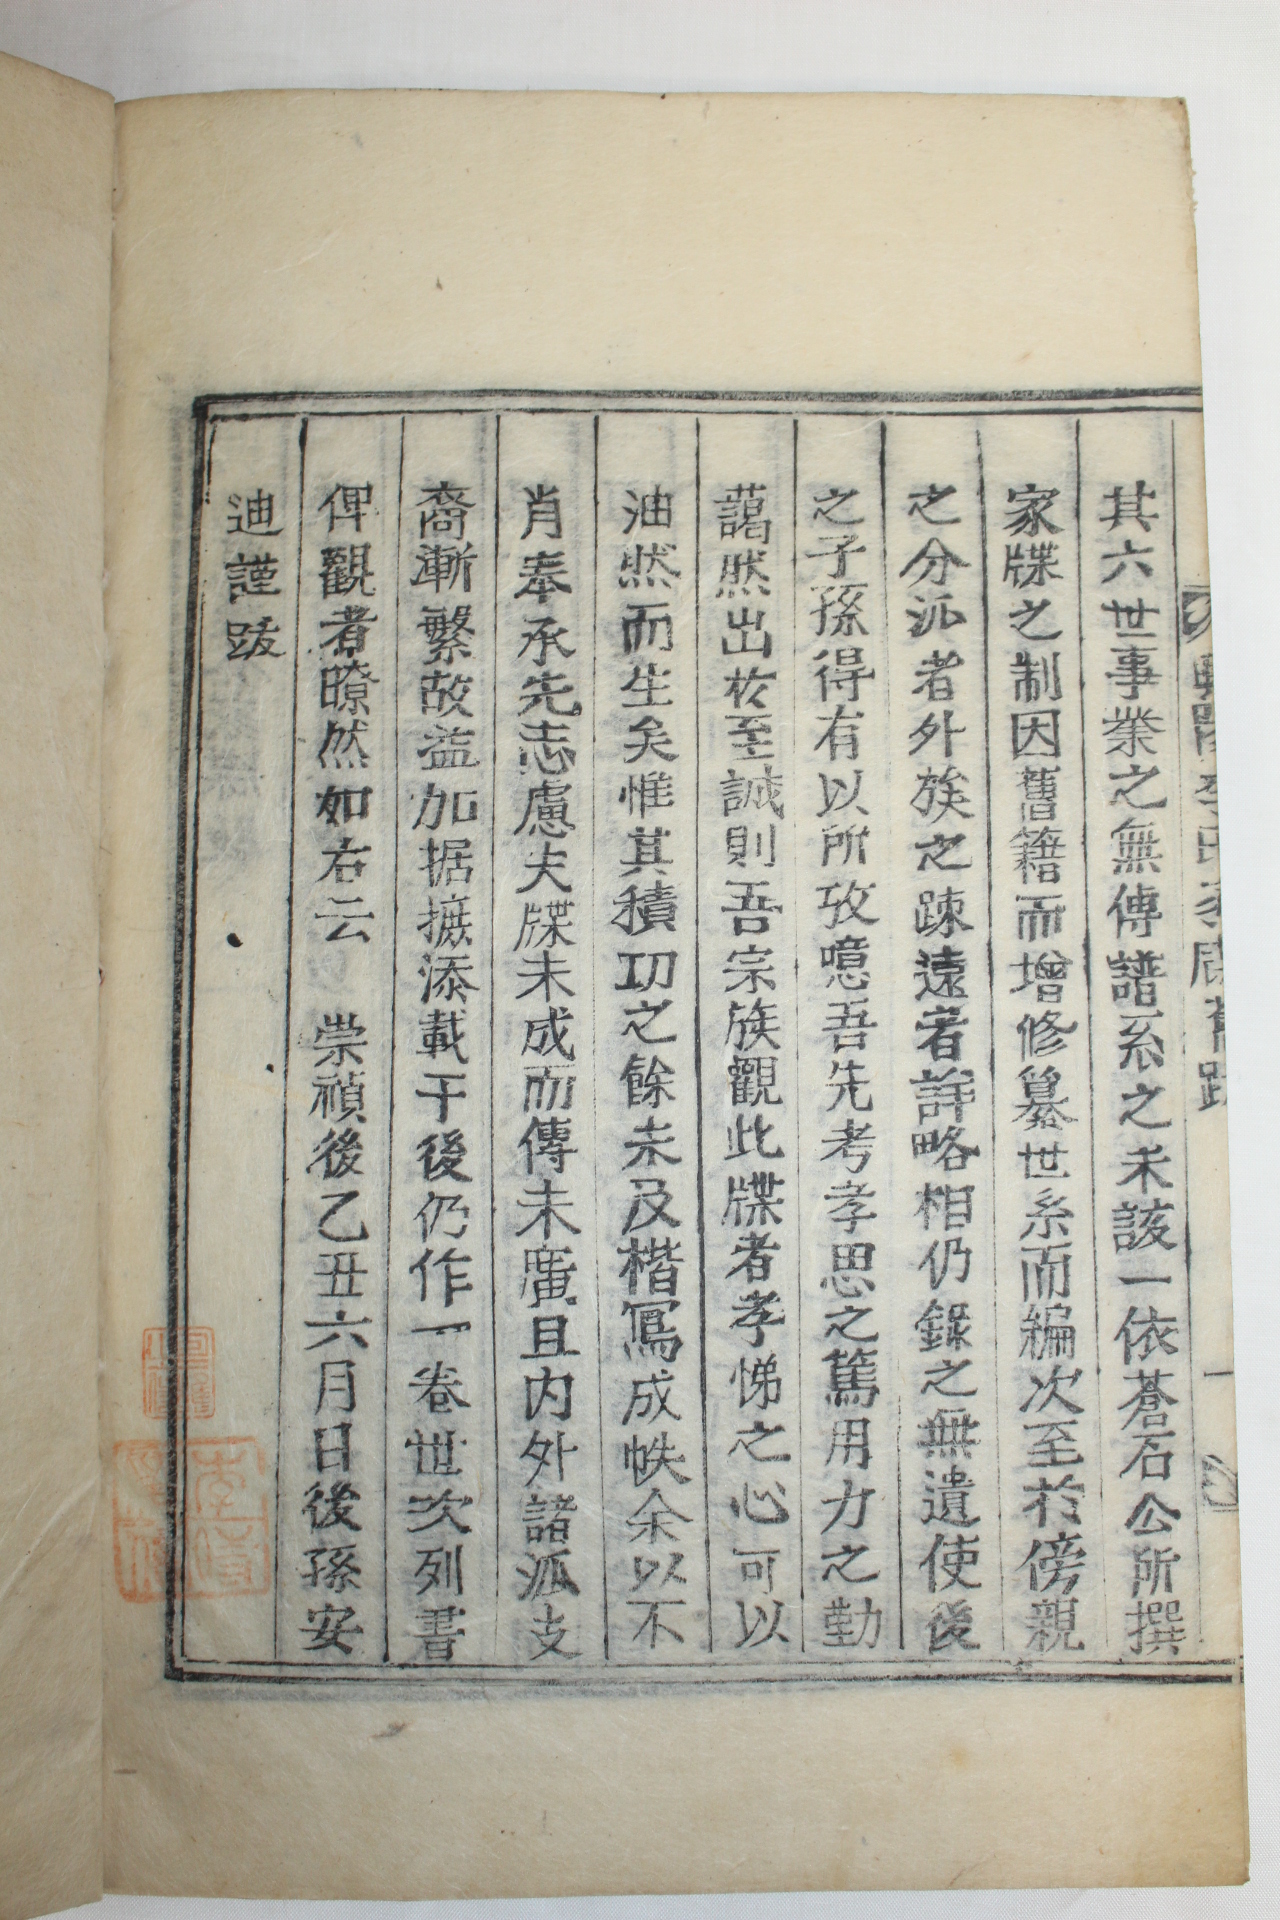 其六世事業之無傳譜系之未該一依蒼石公所撰
家牒之制因舊籍而增修纂世系而編次至於傍親
之分派者外族之踈遠者詳略相仍錄之無遺使後
之子孫得有以所攷噫吾先考孝思之篤用力之勤
藹然出於至誠則吾宗族觀此牒者孝悌之心可以
油然而生矣惟其積功之餘未及楷寫成帙余以不
肖奉承先志慮夫牒未成而傳未廣且內外諸派支
裔漸繁故益加据摭添載于後仍作一卷世次列書
俾觀者瞭然如右云 崇禎後乙丑六月日後孫安
迪謹跋